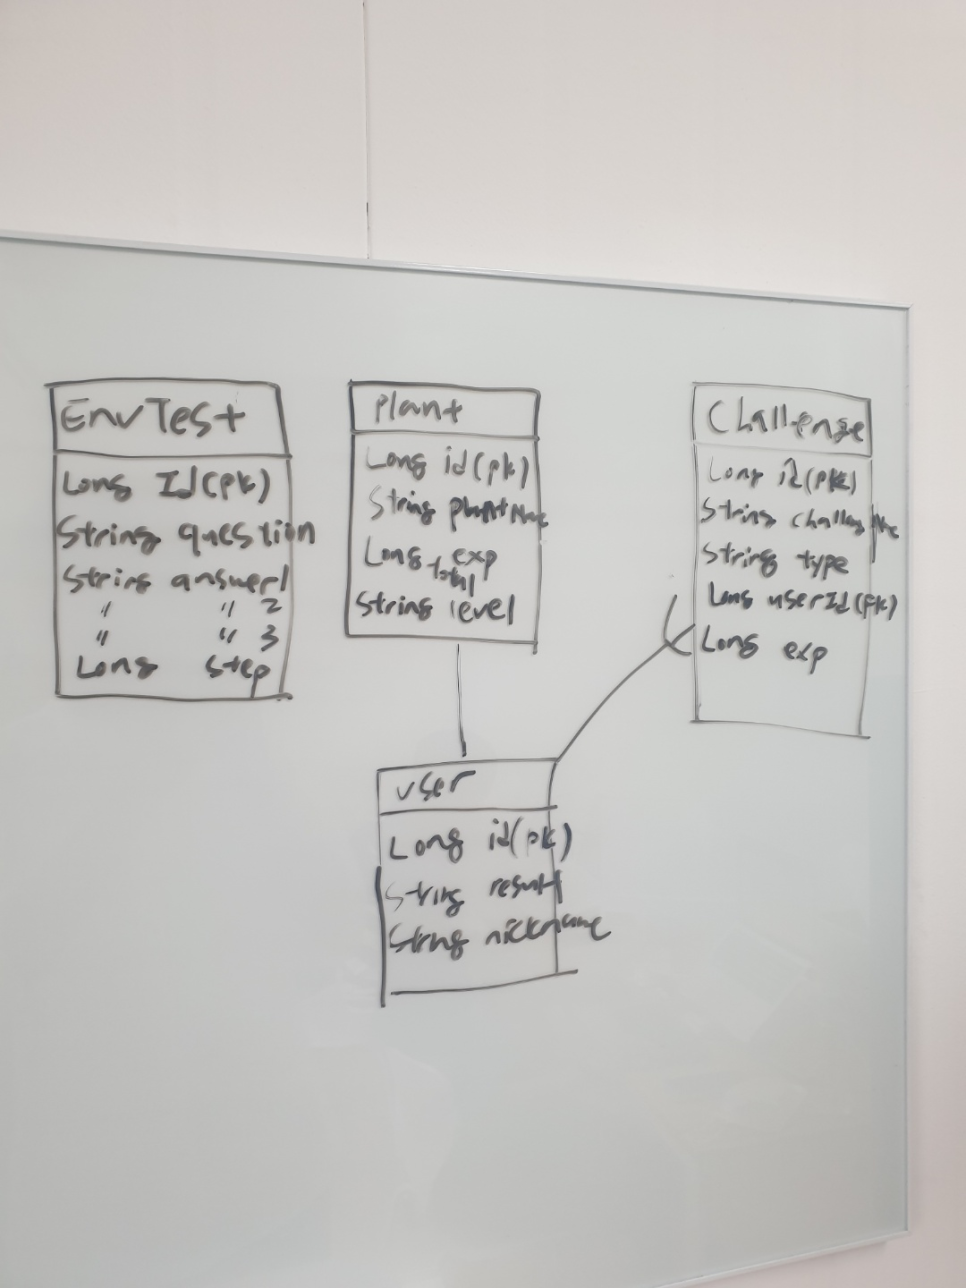 EnvTest
Long Id(pk)
String question
String answer1
" " 2
" " 3
Long step
Plant
Long id(pk)
String plantName
Long exp
total
String level
Challenge
Long id(pk)
String
String type
Long userId(fk)
Long exp
user
Long id(pk)
String result
String nickname